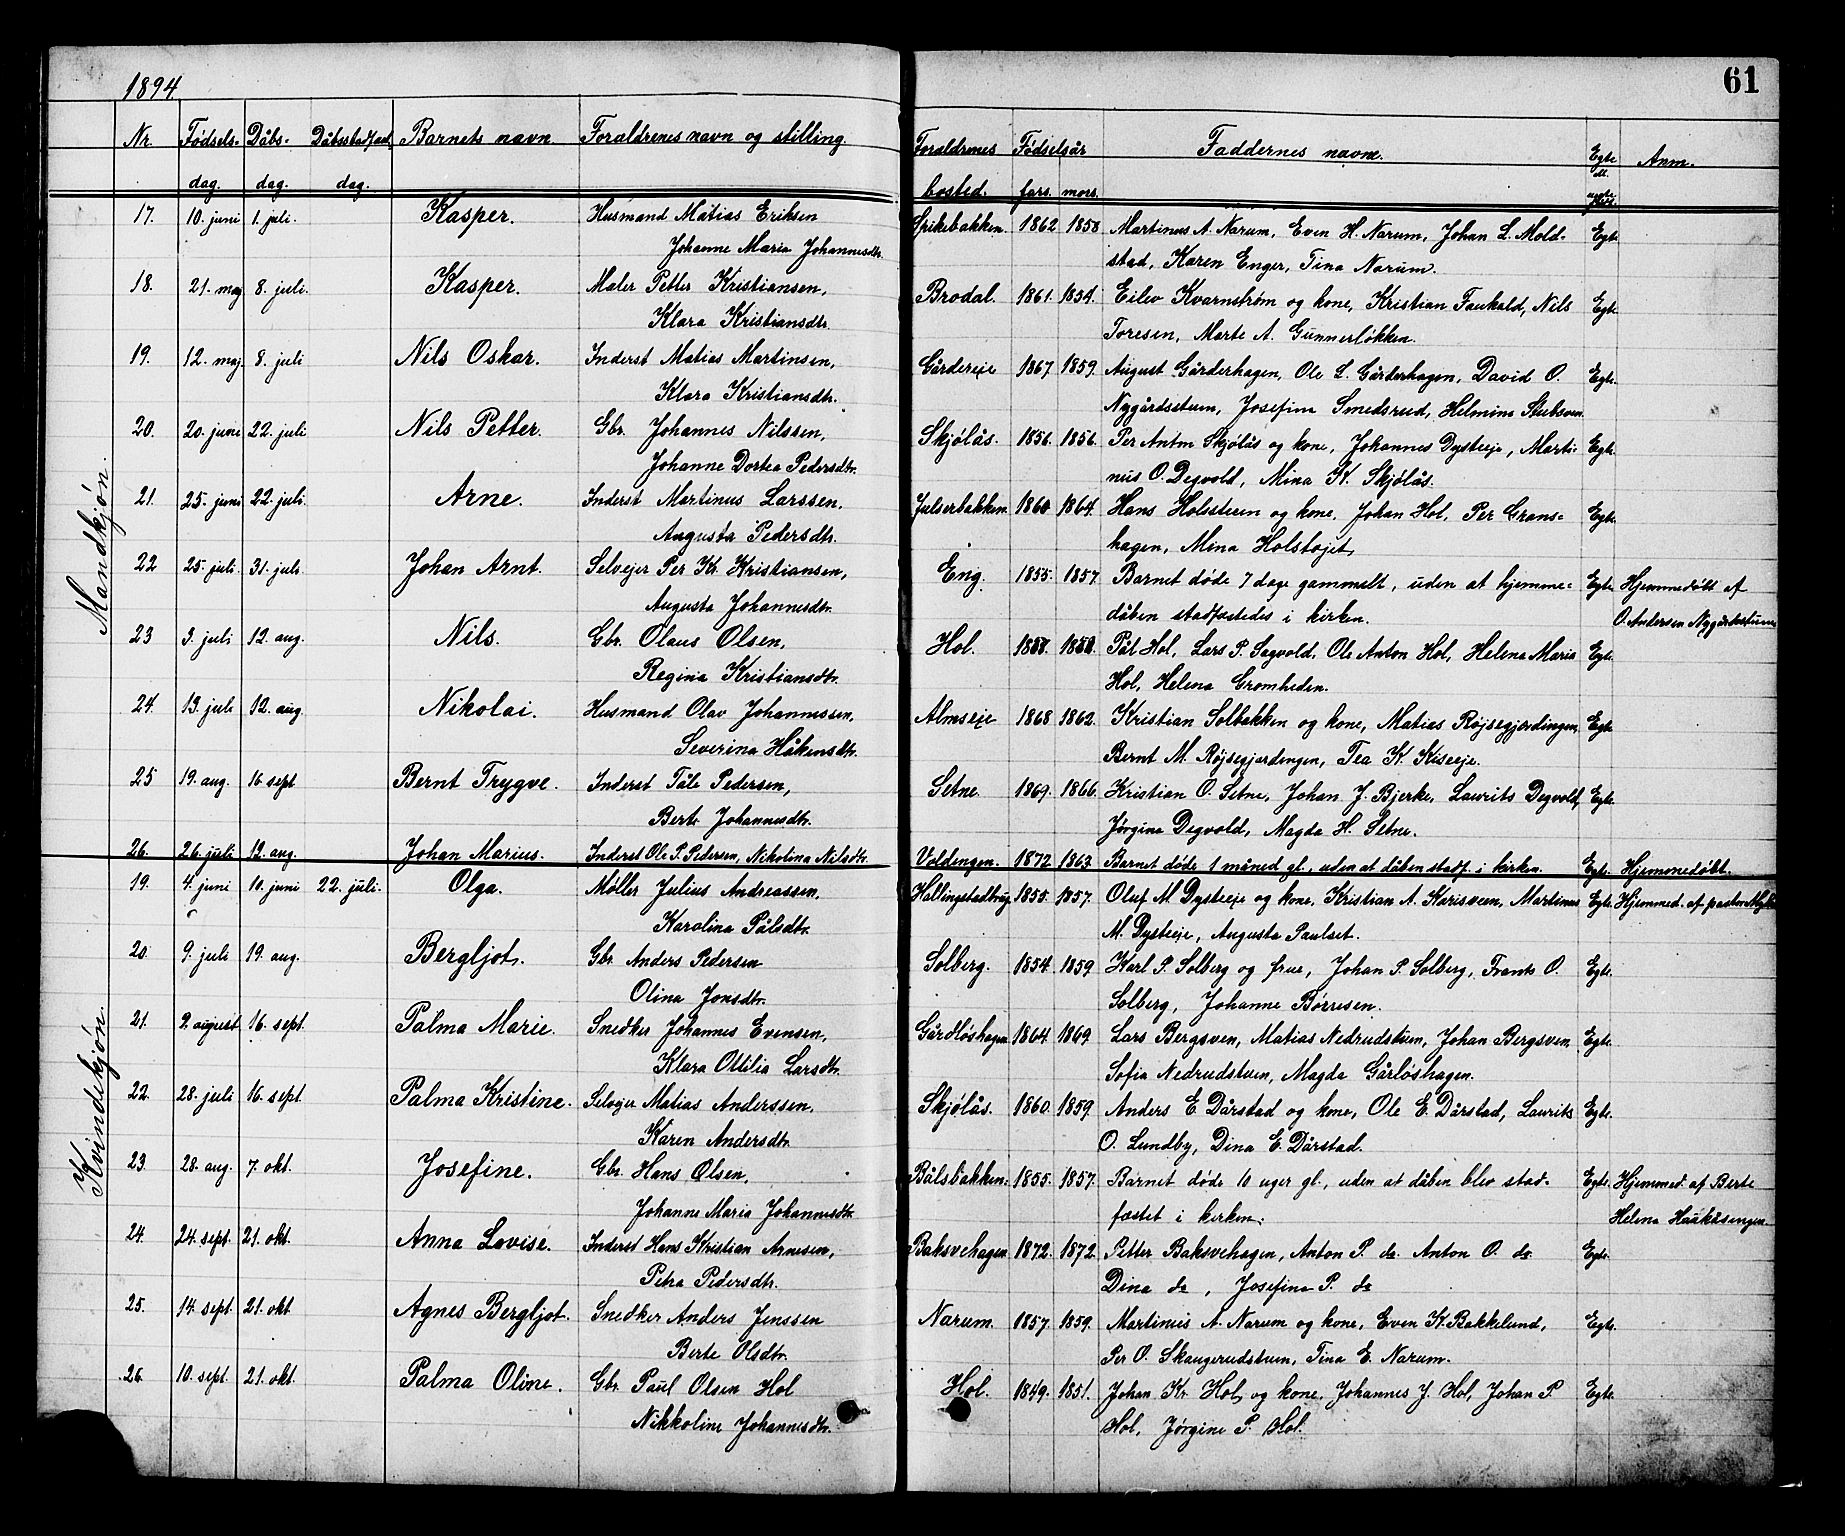 1894
61
Nr. Fødsels- Dåbs- Dåbsstadfæst. Barnets navn Forældrenes navn og stilling. Forældrenes Fødselsår Faddernes navne. Egte Anm.
dag. dag. dag. bosted. fars. mors.
Mandkjøn.
17. 10. juni 1. juli. Kasper. Husmand Matias Eriksen Spikebakken. 1862 1858 Martinus A. Narum, Even H. Narum, Johan L. Mold- Egte
Johanne Maria Johannesdtr. stad, Karen Enger, Tina Narum.
18. 21. maj 8. juli. Kasper. Maler Petter Kristiansen, Brodal. 1861. 1854. Eilev Kvarnstrøm og kone, Kristian Faukald, Nils Egte
Klara Kristiansdtr. Toresen, Marte A. Gunnerløkken.
19. 12. maj. 8. juli Nils Oskar. Inderst Matias Martinsen, Gårdereie 1867 1859. August Gårderhagen, Ole L. Gårderhagen, David O. Egte.
Klara Kristiansdtr. Nygårdsetum, Josefine Smedsrud, Helmine Stubsven.
20. 20. juni 22. juli Nils Petter. Gbr. Johannes Nilssen, Skjølås. 1856. 1856. Per Anton Skjølås og kone, Johannes Dysteeje, Marti- Egte.
Johanne Dortea Pedersdtr. nus O. Degvold, Mina K. Skjølås.
21. 25. juni 22. juli. Arne. Inderst Martinus Larssen, Julserbakken. 1860 1864. Hans Holssteen og kone, Johan Hol, Per Grans- Egte.
Augusta Pedersdtr. hagen, Mina Holstøjet.
22 25. juli. 31. juli. Johan Arnt. Selvejer Per Kr. Kristiansen, Eng. 1855. 1857. Barnet døde 7 dage gammelt, uden at hjemme- Egte. Hjemmedøbt af
Augusta Johannesdtr. dåben stadfæstedes i kirken. O. Andersen Nygårdsetum
23 3. juli 12. aug. Nils. Gbr. Olaus Olsen, Hol. Pål Hol, Lars P. Sagvold, Ole Anton Hol, Helene Marie Egte.
Regina Kristiansdtr. Hol, Helena Gromheden.
24. 13. juli 12. aug. Nikolai. Husmand Olav Johannessen, Almseie 1868 1862. Kristian Solbakken og kone, Matias Røjsegjordingen, Egte
Severina Håkensdtr. Bernt M. Røjsegjardengen, Tea K. Kiseeje.
25 19. aug. 16 sept Bernt Trygve. Inderst Påle Pedersen, Setne. 1869. 1866. Kristian O. Setne, Johan J. Bjerke, Laurits Degvold, Egte.
Berte Johannesdtr. Jørgine Degvold, Magda H. Setne.
26. 26. juli 19. aug. Johan Marius. Inderst Ole P. Pedersen, Nikolina Nilsdtr. Voldengen. 1872 1863. Barnet døde 1 måned gl., uden at dåben stadf. i kirken. Egte. Hjemmedøbt.
Kvindekjøn.
19. 4. juni 10. juni 22. juli. Olga. Møller Julius Andreassen, Hallingstadbrug 1855. 1857. Oluf M. Dysteeje og kone, Kristian A. Karisveen, Martinus Egte. Hjemmed. af pastor
Karolina Pålsdtr. M. Dysteeje, Augusta Paulset.
20. 9. juli 19. aug. Bergljot. Gbr. Anders Pedersen Solberg. 1854. 1859 Karl P. Solberg og frue, Johan P. Solberg, Frants O. Egte
Olina Jonsdtr. Solberg, Johanne Børresen.
21. 2. august 16. sept. Palma Marie. Snedker Johannes Evensen, Gårdløshagen 1864. 1869. Lars Bergsven, Matias Nedrudstuen, Johan Bergsven Egte.
Klara Ottilia Larsdtr. Sofia Nedrudstuen, Magda Gårløshagen.
22. 28. juli 16. sept. Palma Kristine. Selvejer Matias Anderssen, Skjølås. 1860. 1859. Anders E. Dårstad og kone, Ole E. Dårstad, Laurits Egte.
Karen Andersdtr. O. Lundby, Dina E. Dårstad.
23. 28. aug. 7. okt. Josefine. Gbr. Hans Olsen, Bålsbakken. 1855. 1857. Barnet døde 10 uger gl., uden at dåben blev stad- Egte. Hjemmed. af Berte
Johanne Maria Johannesdtr. fæstet i kirken. Helena Haukåsengen
24. 24. sept. 21. okt. Anna Lovise. Inderst Hans Kristian Arnesen, Baksvehagen 1872. 1872. Petter Baksvehagen, Anton P. do. Anton O. do Egte.
Petra Pedersdtr. Dina do, Josefine P. do
25. 14. sept. 21. okt Agnes Bergljot. Snedker Anders Jenssen Narum. 1857. 1859. Martinius A. Narum og kone, Even K. Bakkelund, Egte.
Berte Olsdtr. Per O. Skaugerudstuen, Tina E. Narum.
26. 10. sept. 21. okt. Palma Oline. Gbr. Paul Olsen Hol Hol. 1849. 1851. Johan Kr. Hol, og kone, Johannes J. Hol, Johan P. Egte.
Nikkoline Johannesdtr. Hol, Jørgine P. Hol.